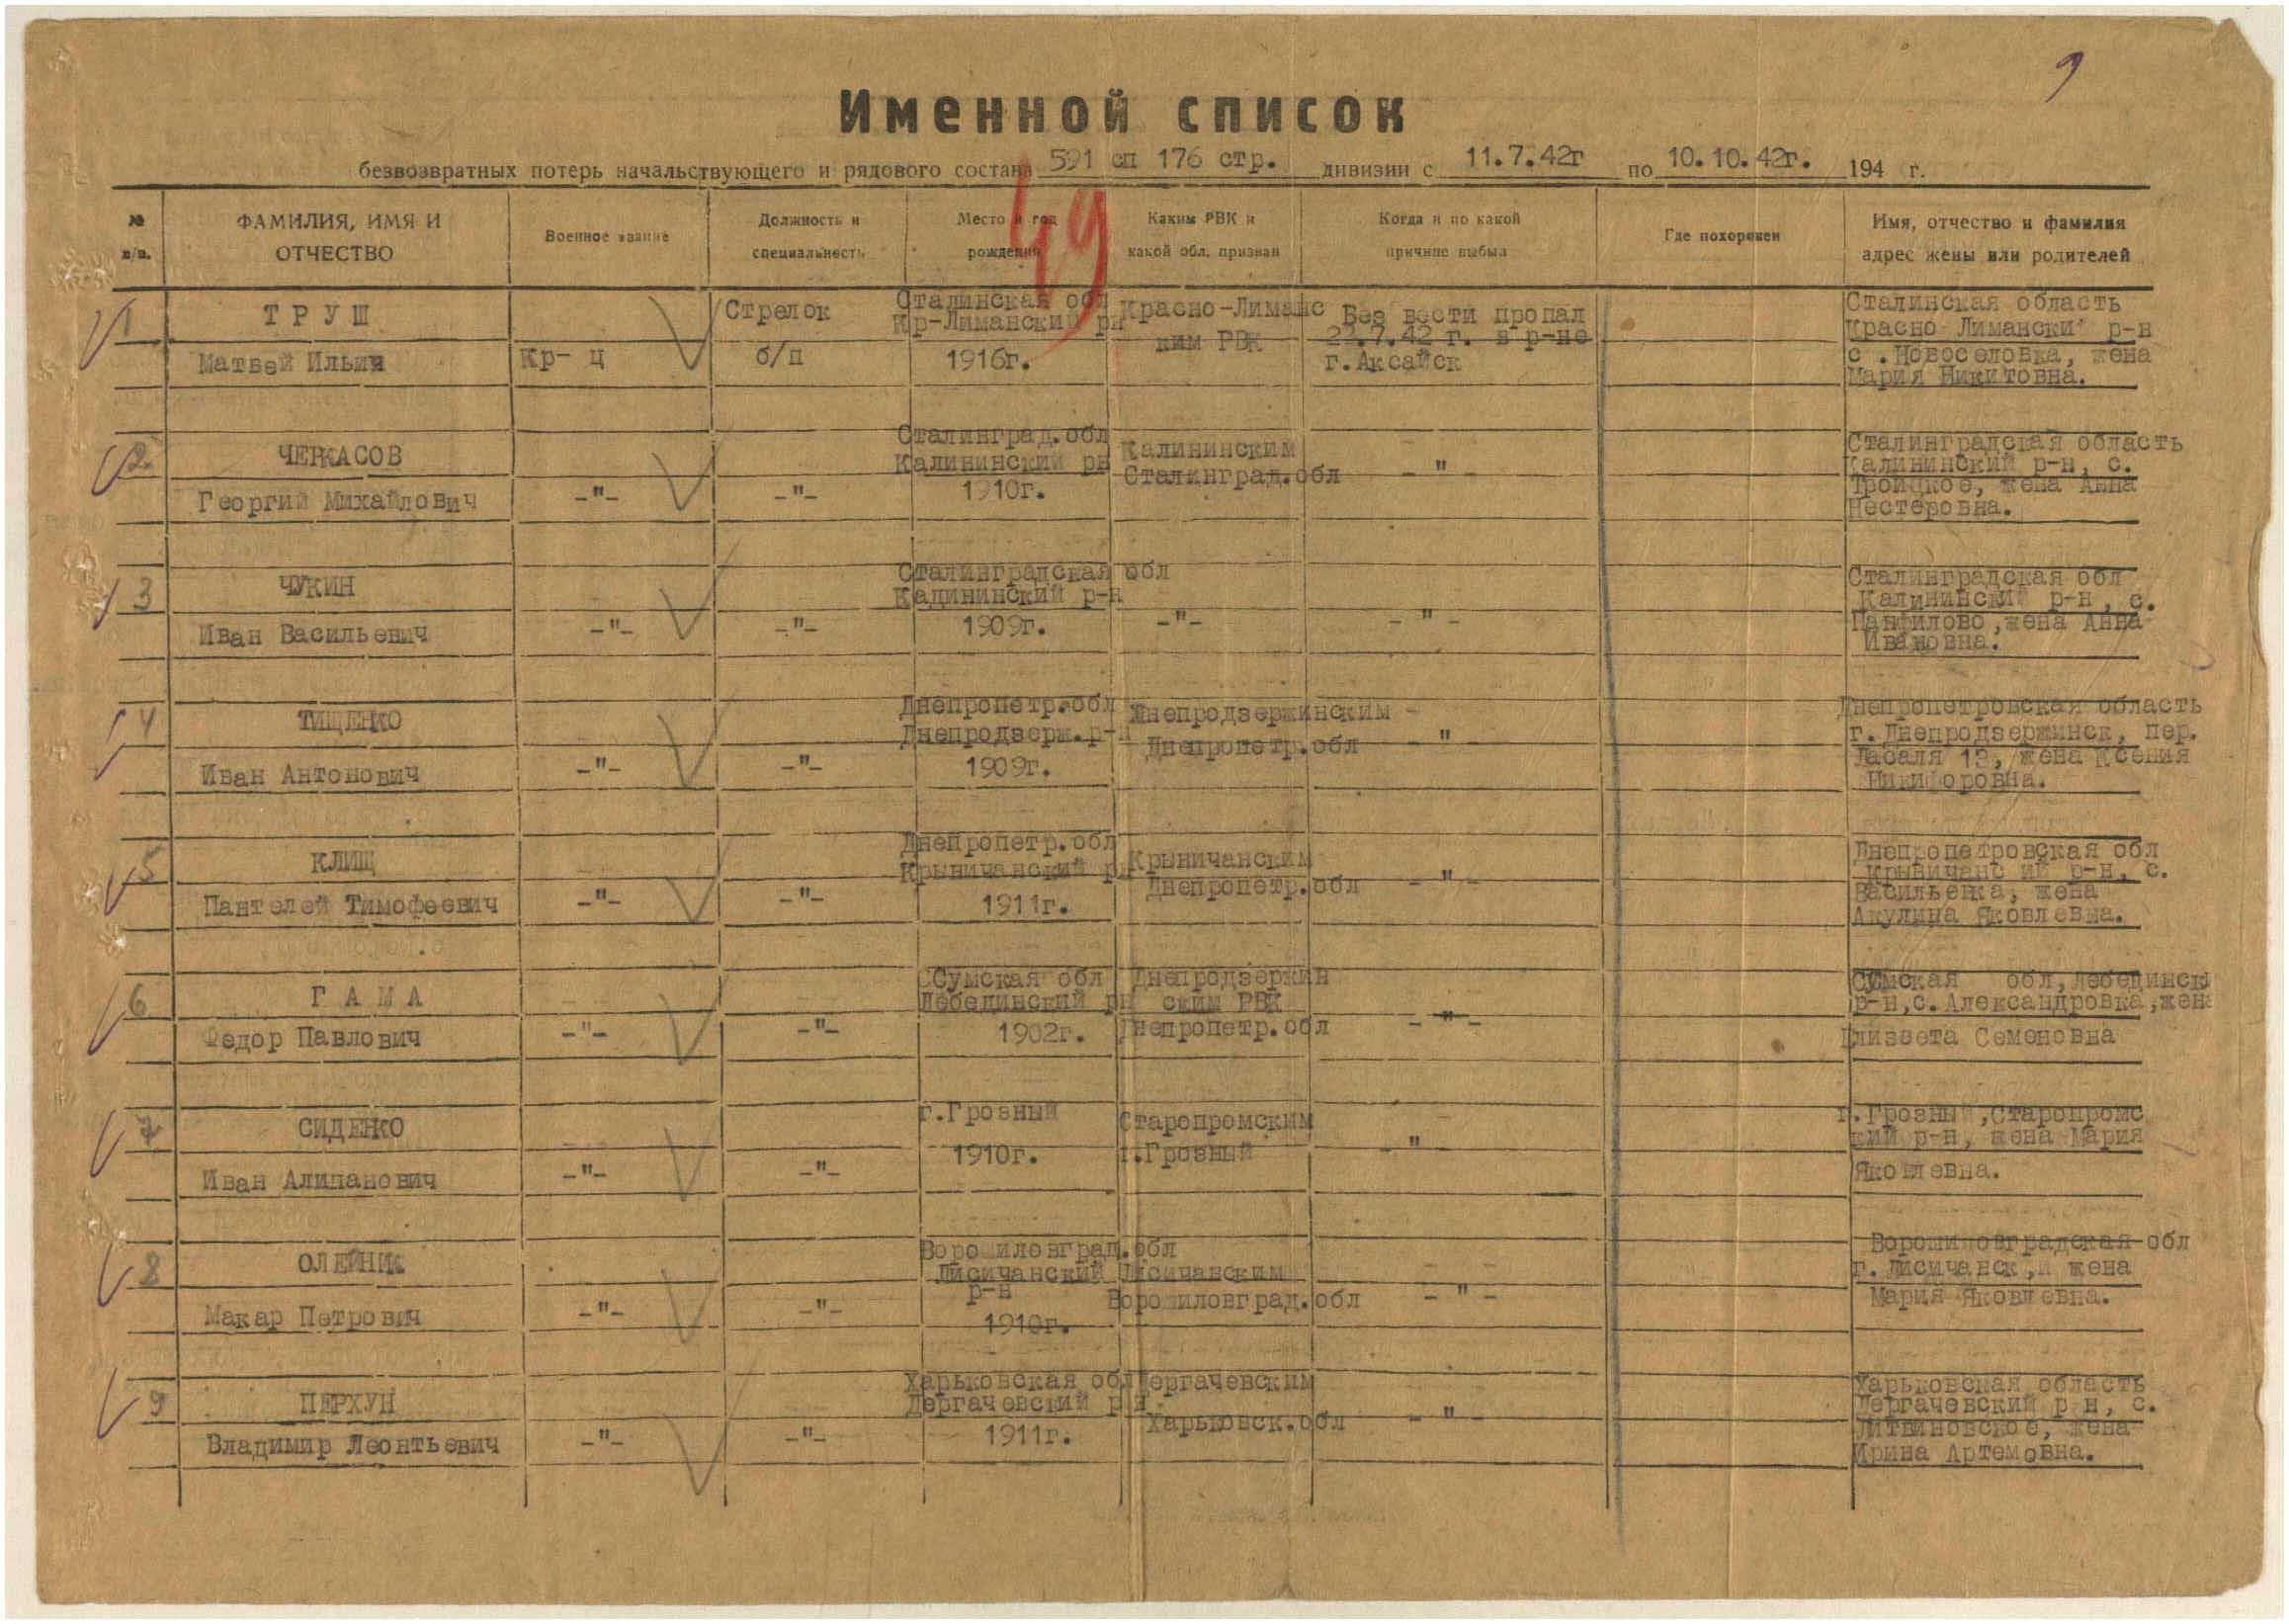 9
Именной список
безвозвратных потерь начальствующего и рядового состава 591 сп 176 стр. дивизии с 11.7.42г по 10.10.42г. 194 г.
49
№ п/п.
ФАМИЛИЯ, ИМЯ И ОТЧЕСТВО
Военное звание
Должность и специальность
Место и год рождения
Каким РВК и какой обл. призван
Когда и по какой причине выбыл
Где похоронен
Имя, отчество и фамилия адрес жены или родителей
1
ТРУШ
Матвей Ильич
Кр-ц
Стрелок
б/п
Сталинская обл
Кр-Лиманский рн
1916г.
Красно-Лиманс
ким РВК
Без вести пропал
22.7.42 г. в р-не
г.Аксайск
Сталинская область
Красно Лимански р-н
с.Новоселовка, жена
Мария Никитовна.
2
ЧЕРКАСОВ
Георгий Михайлович
-"-
-"-
Сталинград.обл
Калининский рн
1910г.
Калининским
Сталинград.обл
- " -
Сталинградская область
Калининский р-н, с.
Троицкое, жена Анна
Нестеровна.
3
ЧУКИН
Иван Васильевич
-"-
-"-
Сталинградская обл
Калининский р-н
1909г.
-"-
- " -
Сталинградская обл
Калининский р-н, с.
Панфилово, жена Анна
Ивановна.
4
ТИЩЕНКО
Иван Антонович
-"-
-"-
Днепропетр.обл
Днепродзерж.р-н
1909г.
Днепродзержинским
Днепропетр.обл
- " -
Днепропетровская область
г. Днепродзержинск, пер.
Ласаля 13, жена Ксения
Никифоровна.
5
КЛИЩ
Пантелей Тимофеевич
-"-
-"-
Днепропетр.обл
Крыничанский рн
1911г.
Крыничанским
Днепропетр.обл
- " -
Днепропетровская обл
Крыничанс ий р-н, с.
Васильевка, жена
Акулина Яковлевна.
6
ГАМА
Федор Павлович
-"-
-"-
Сумская обл
Лебединский рн
1902г.
Днепродзержин
ским РВК
Днепропетр.обл
- " -
Сумская обл, Лебединск
р-н,с.Александровка,жена
Елизвета Семеновна
7
СИДЕНКО
Иван Алипанович
-"-
-"-
г.Грозный
1910г.
Старопромским
г.Грозный
- " -
г.Грозный,Старопромс
кий р-н, жена Мария
Яковлевна.
8
ОЛЕЙНИК
Макар Петрович
-"-
-"-
Ворошиловград.обл
Лисичанский
р-н
1910г.
Лисичанским
Ворошиловград.обл
- " -
Ворошиловградская обл
г. Лисичанск, жена
Мария Яковлевна.
9
ПЕРХУН
Владимир Леонтьевич
-"-
-"-
Харьковская обл
Дергачевский рн
1911г.
Дергачевским
Харьковск.обл
- " -
Харьковская область
Дергачевский р н, с.
Литвиновское, жена
Ирина Артемовна.